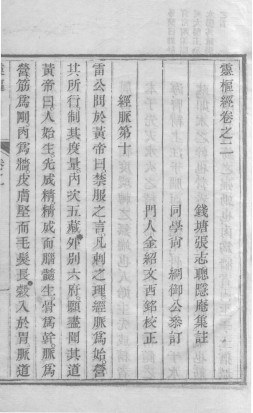 靈樞經卷之二
錢塘張志聰隱庵集註
同學 公叅訂
門人金紹文西銘校正
經脈第十
雷公問於黃帝曰禁服之言凡刺之理經脈爲始營
其所行制其度量內次五藏外別六府願盡聞其道
黃帝曰人始生先成精精成而腦髓生骨爲幹脈爲
營筋爲剛肉爲牆皮膚堅而毛髮長穀入於胃脈道